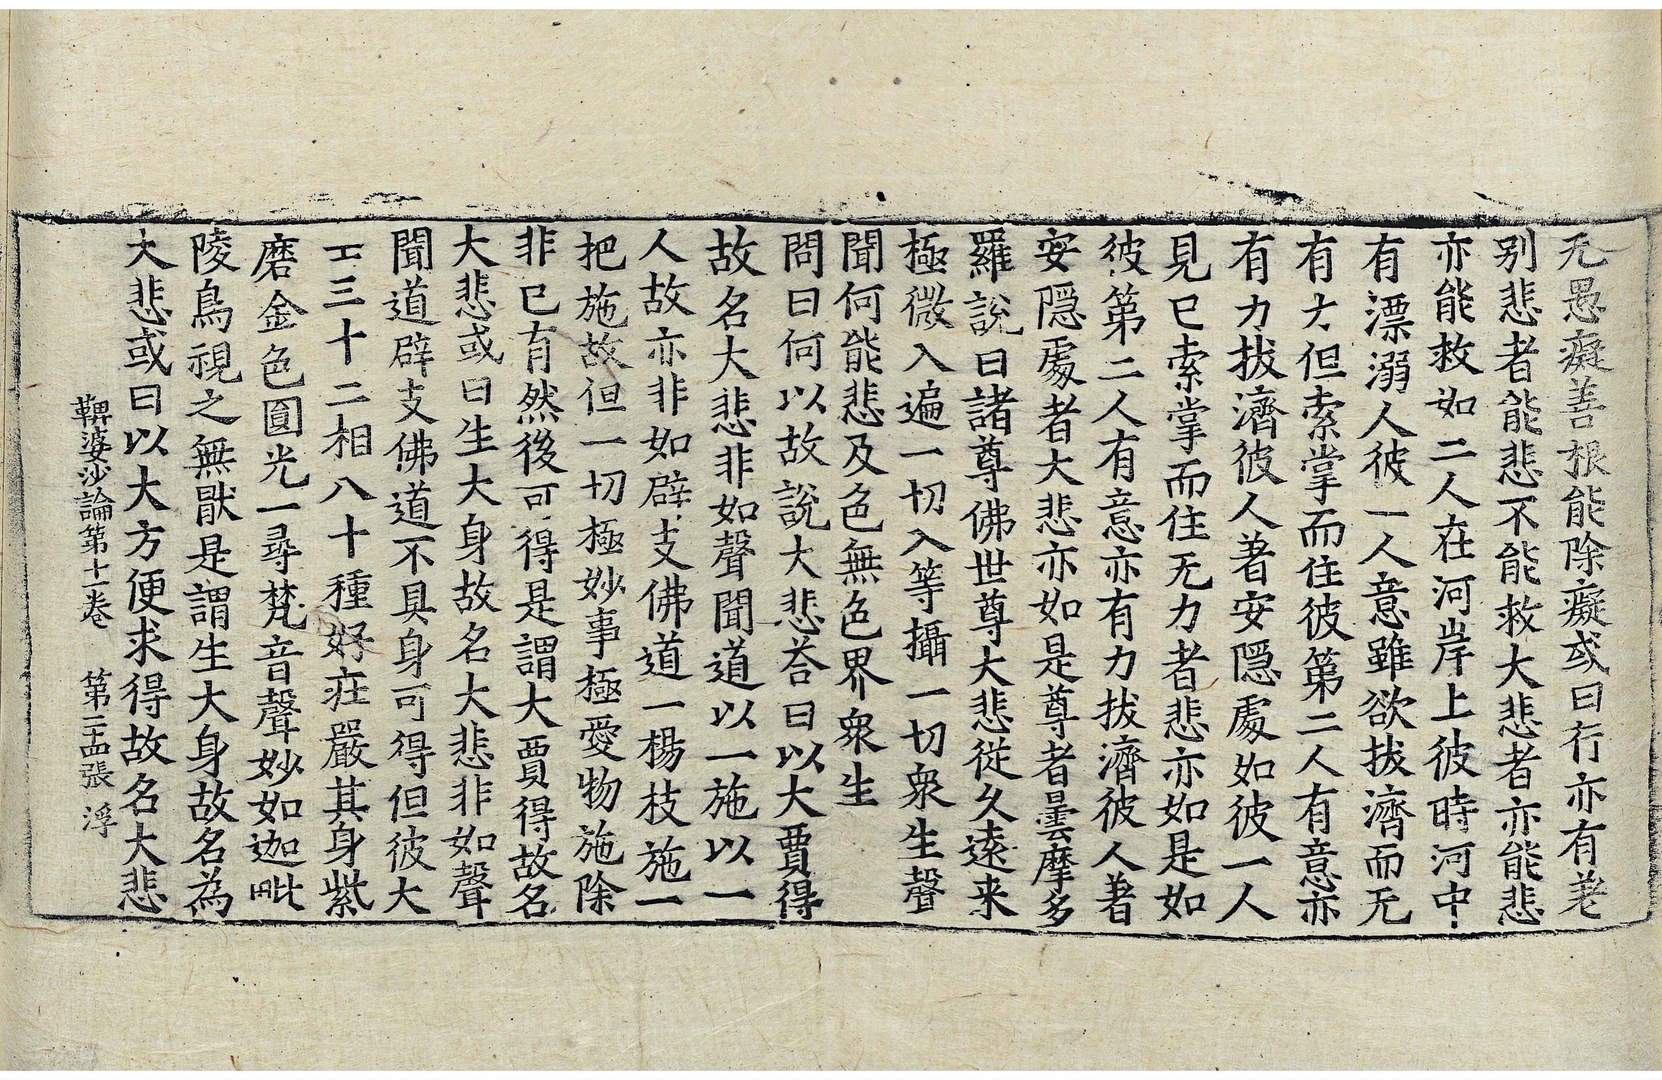 无愚癡善根能除癡或曰行亦有差
别悲者能悲不能救大悲者亦能悲
亦能救如二人在河岸上彼時河中
有漂溺人彼一人意雖欲拔濟而无
有力但索掌而住彼第二人有意亦
有力拔濟彼人著安隠處如彼一人
見已索掌而住无力者悲亦如是如
彼第二人有意亦有力拔濟彼人著
安隠處者大悲亦如是尊者曇摩多
羅說曰諸尊佛世尊大悲從久遠来
極微入遍一切入等攝一切衆生聲
聞何能悲及色無色界衆生
問曰何以故說大悲荅曰以大賈得
故名大悲非如聲聞道以一施以一
人故亦非如辟支佛道一楊枝施一
把施故但一切極妙事極愛物施除
非已有然後可得是謂大賈得故名
大悲或曰生大身故名大悲非如聲
聞道辟支佛道不具身可得但彼大
士三十二相八十種好莊嚴其身紫
磨金色圓光一尋梵音聲妙如迦毗
陵鳥視之無猒是謂生大身故名為
大悲或曰以大方便求得故名大悲
鞞婆沙論第十一卷 第二十四張 浮